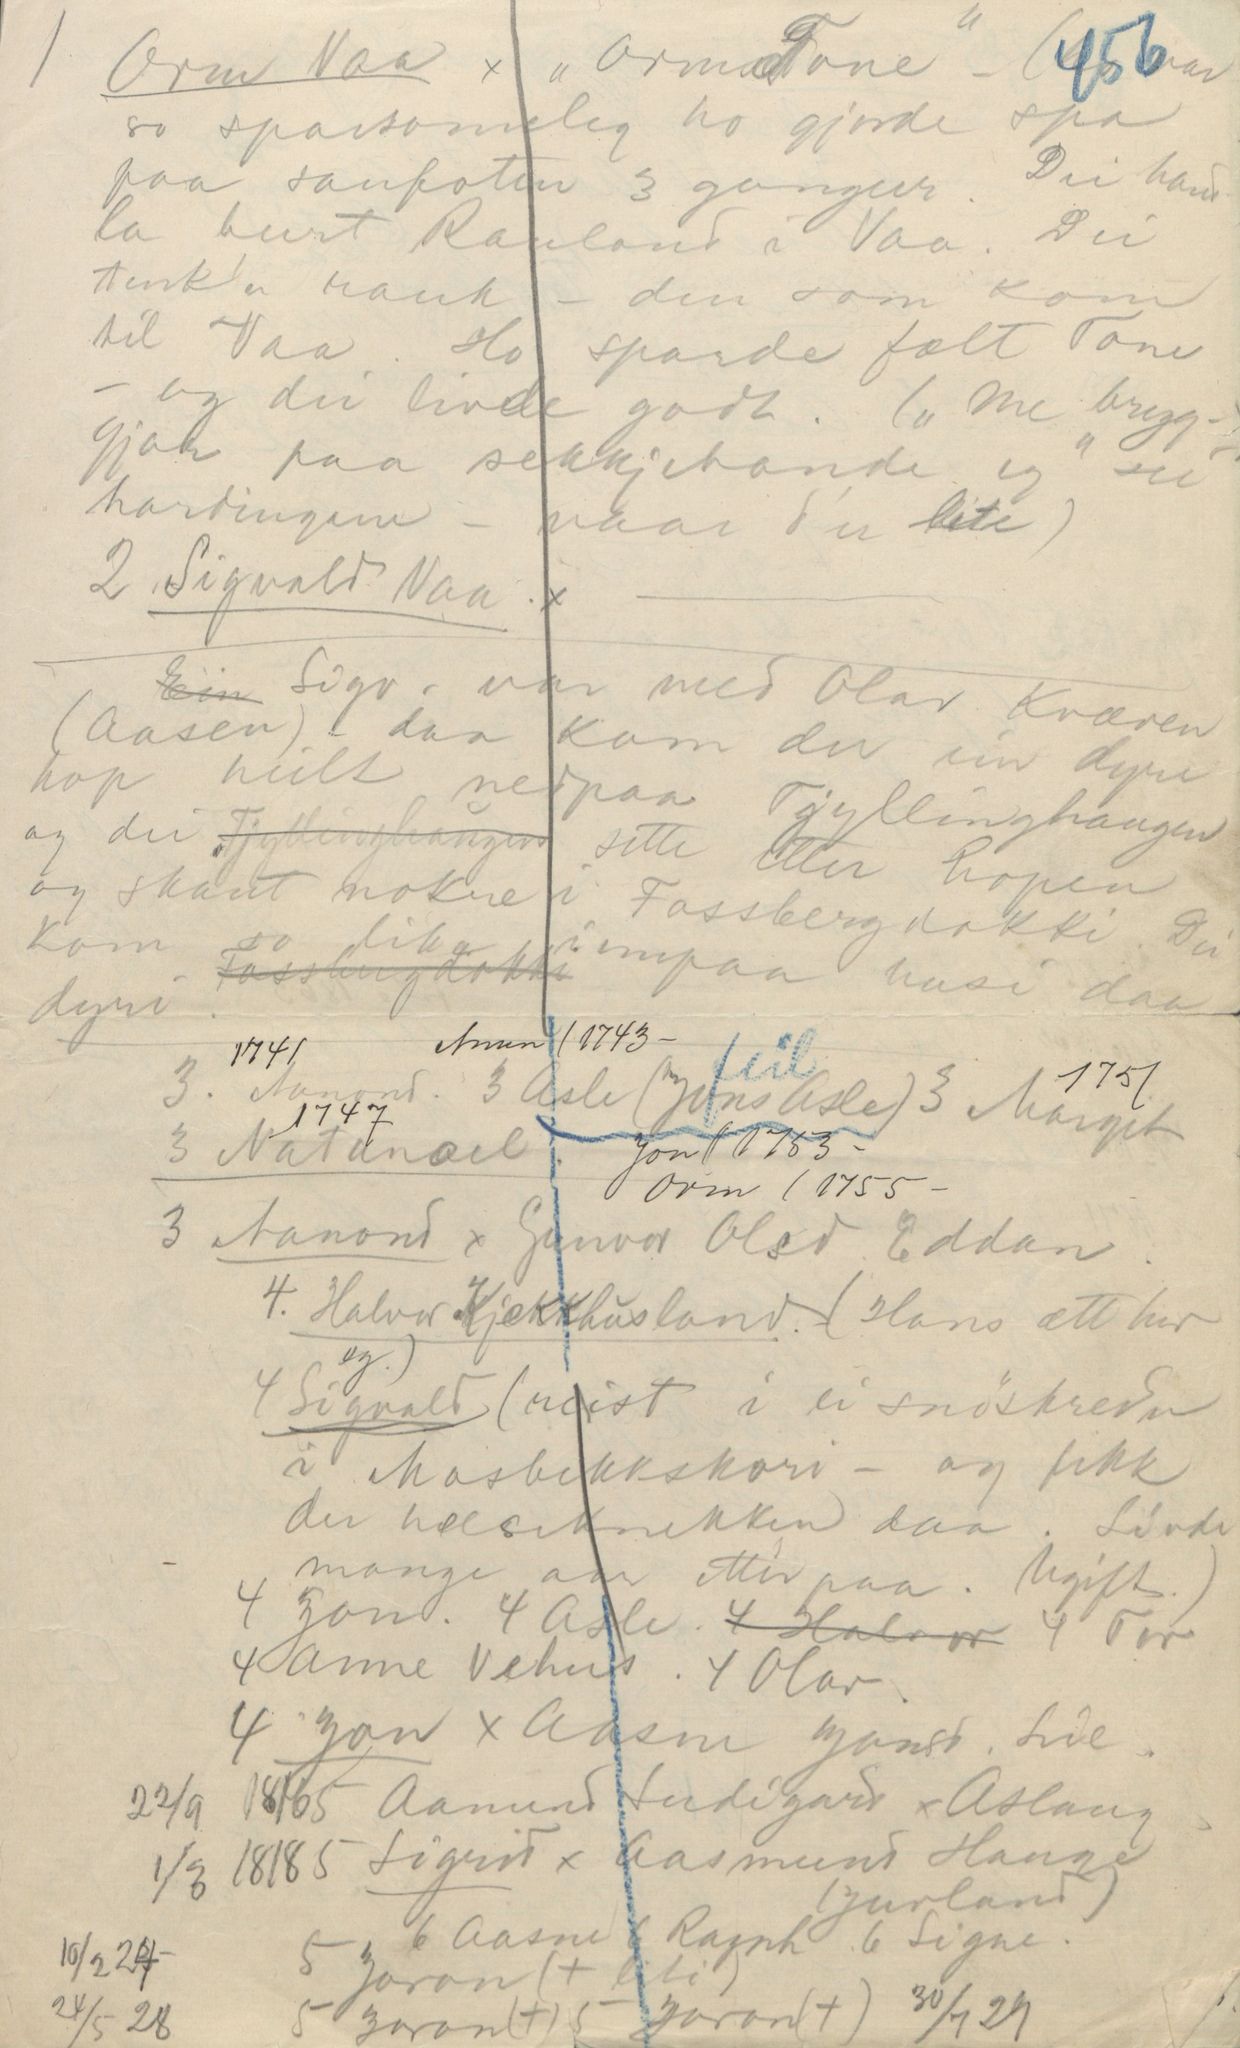 456
1 Orm Vaa x "Orme Tone" - ( var
so sparsomeleg ho gjorde spa
paa saufoten 3 gonger. Dei hand-
la burt Rauland i Vaa. Dei
tenk'u rauk - den som kom
til Vaa. Ho sparde fælt Tone
- og dei livde godt. ("Me brygg-
gjar paa sekkjebande eg" sei
hardingene - naar d'er lite)
2 Sigvald Vaa. x
Ein Sigv. var med Olav Kvæven
(Aasen) - daa kom der ein dyre
hop heilt nedpaa Tjyllinghaugen
og dei Tjyllinghaugen sette etter hopen
og skaut nokre i Fossbergdokki. Dei
kom so like innpaa husi daa
Fossbergdokki
dyri.
1741 Anun (1743- feil 1751
3. Aanond. 3 Asle (Jons Asle) 3 Margit
1747
3 Natanael. Jon (1753-
Orm (1755-
3 Aanond x Gunvor Olsd. Eddan.
4. Halvor Kjekkhusland. (Hans ætt her
og.)
4 Sigvald (reist i ei snöskreda
i Mosbekkskori - og fekk
der helseknekken daa. Livde
mange aar etterpaa. Ugift.)
4 Jon. 4 Asle. 4 Halvor 4 Tor
4 Anne Vehus. 4 Olav.
4 Jon x Aasne Jonsd. Lid.
22/9 1816 5 Aamund Lurdigard x Aslaug
1/3 1818 5 Sigrid x Aasmund Hauge
(Jurland)
6 Aasne 6 Ragnh. 6 Signe.
10/2 24- 5 Joron (+ liti)
24/5 28 5 Joron (+) 5 Joron (+) 30/7 29